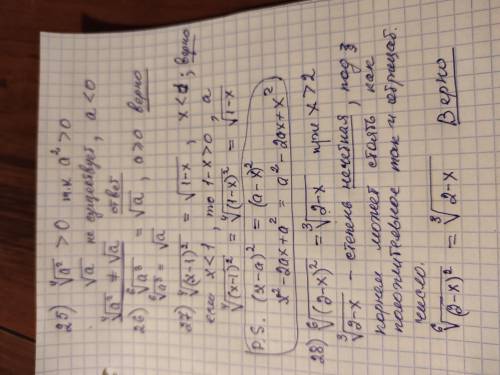 25) ∜a² > 0 т.к. a² > 0
√a не существует, a < 0
∜a² ≠ √a ответ
26) ⁶√a³ = √a, a ≥ 0 верно
⁶√a³ = √a
27) ∜(x-1)² = √1-x, x < 1; верно
если x < 1, то 1-x > 0, а
∜(x-1)² = ∜(1-x)² = √1-x
P.S. (x-a)² = (a-x)²
x² - 2ax + a² = a² - 2ax + x²
28) ⁶√(2-x)² = ³√2-x при x > 2
³√2-x - степень нечетная, под
корнем может стоять как
положительное так и отрицат.
число.
⁶√(2-x)² = ³√2-x Верно